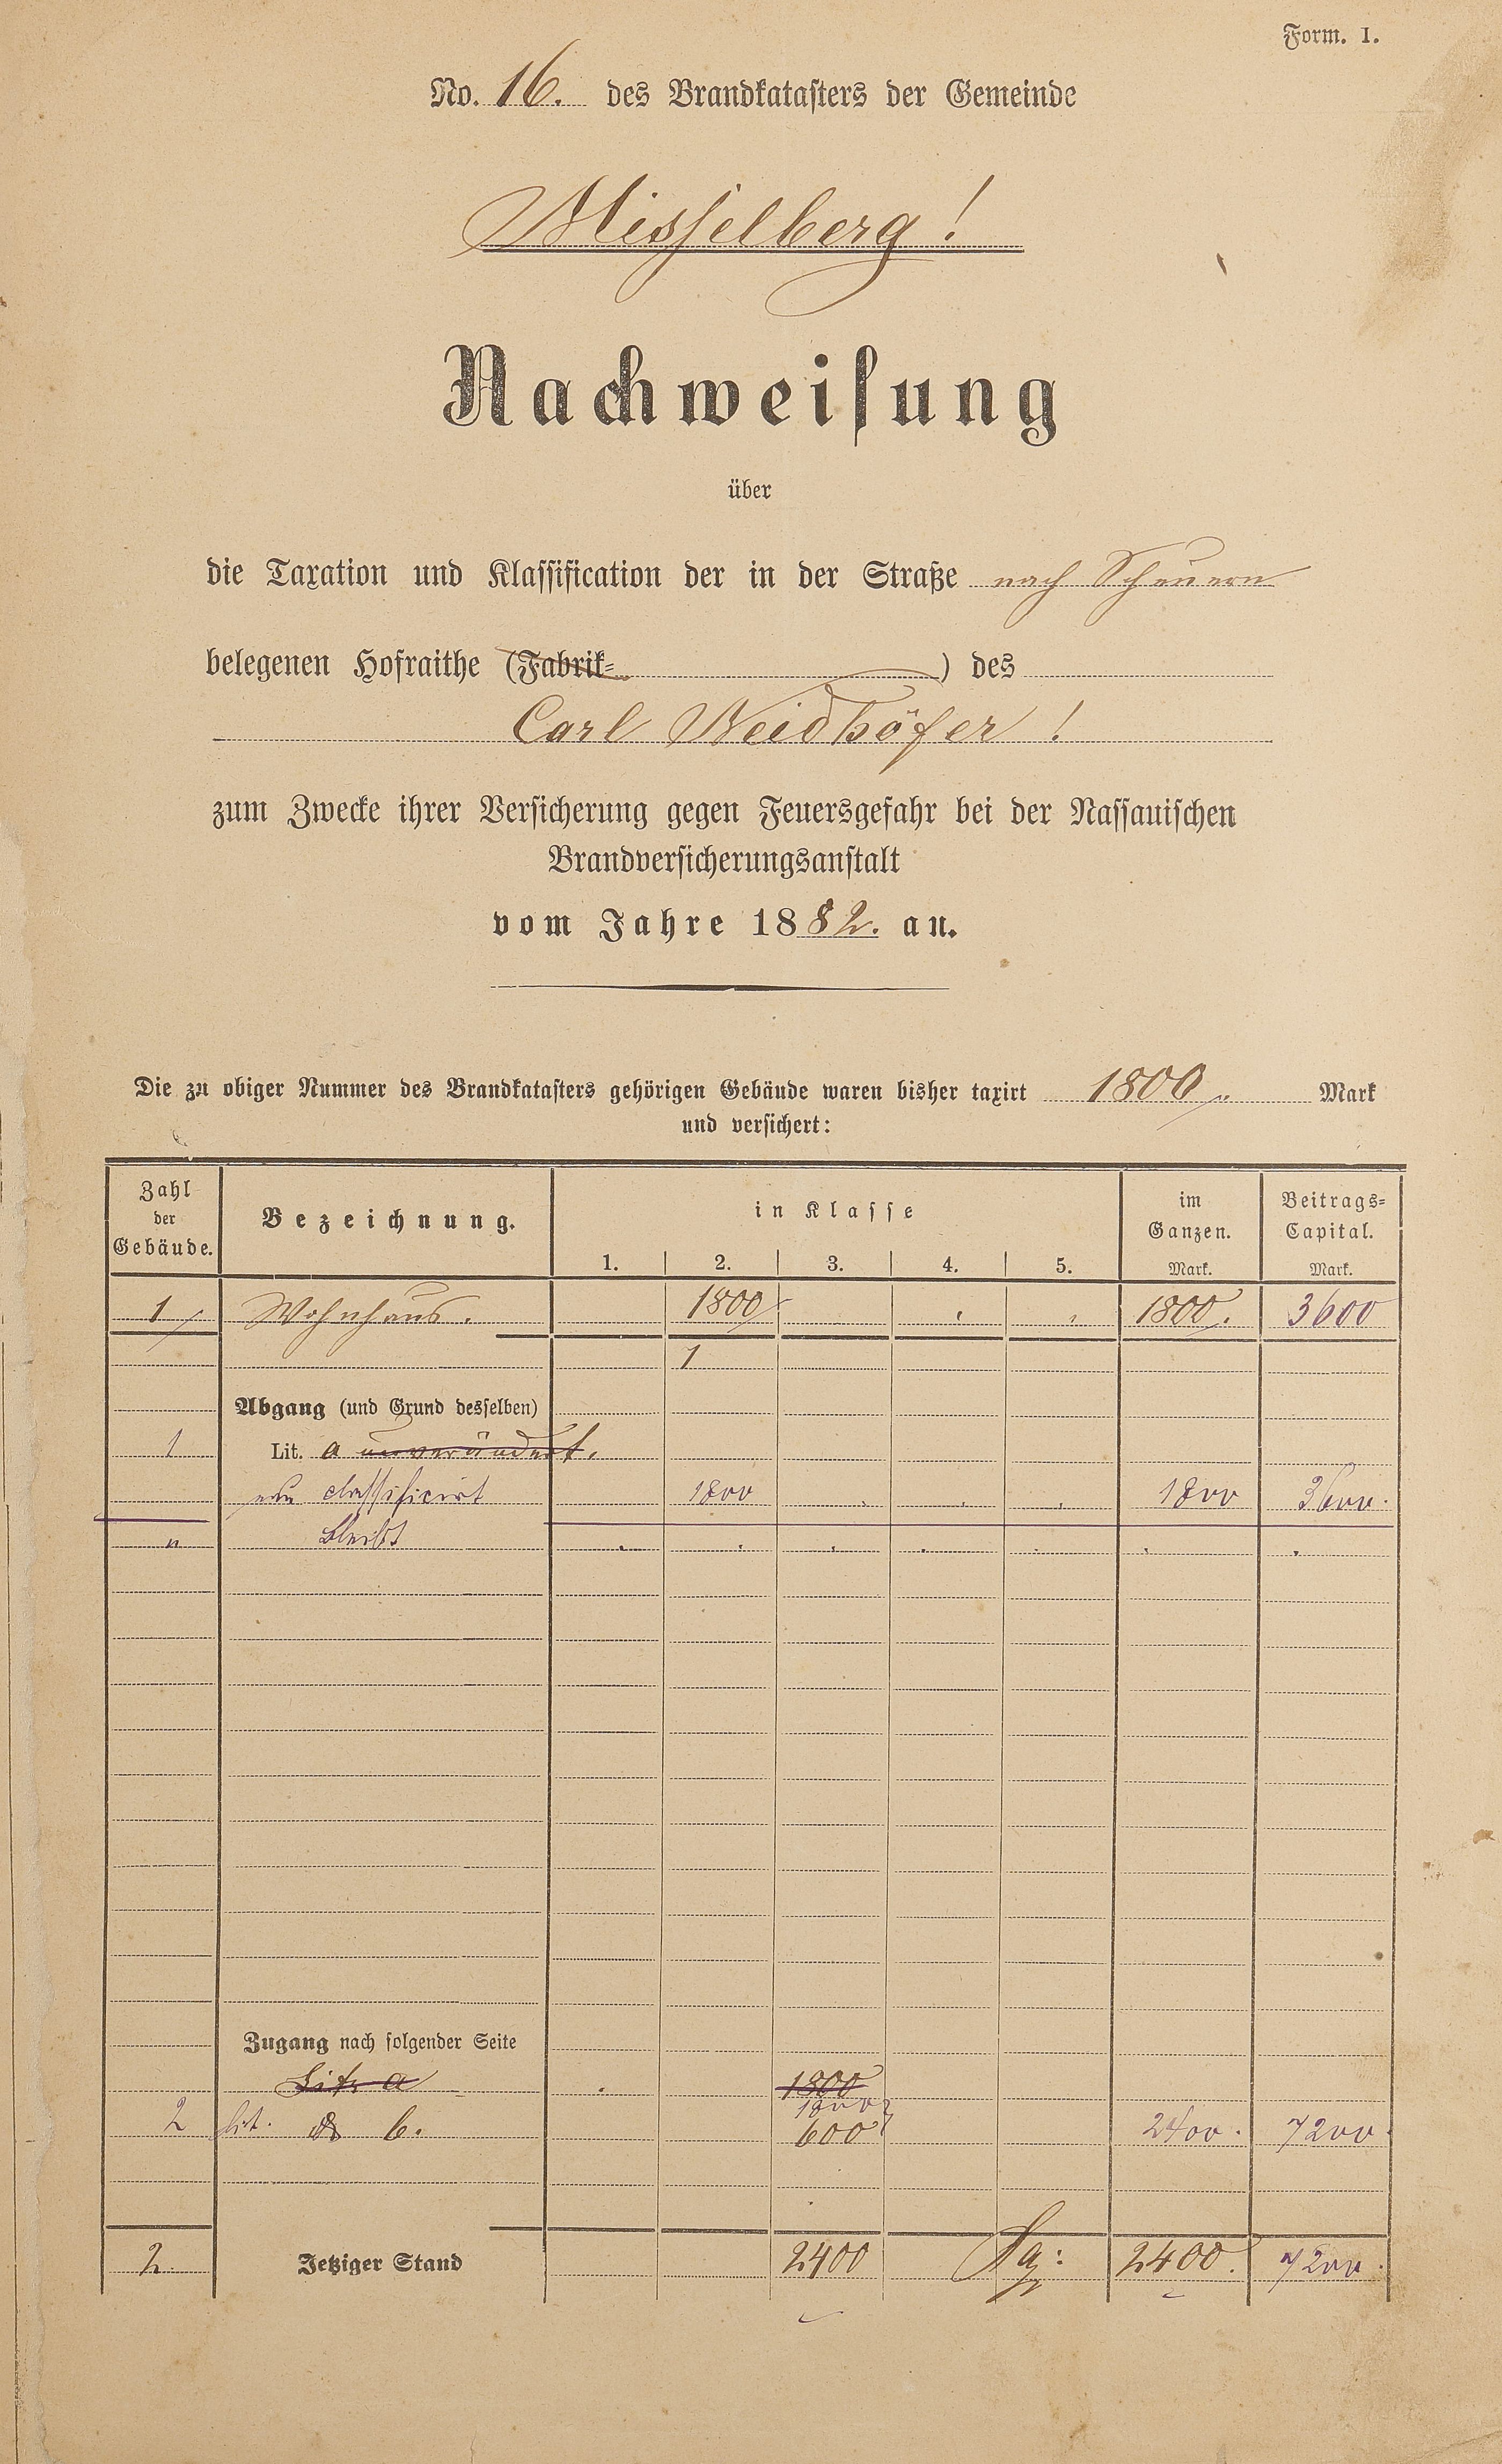 Form. I.
No. 16. des Brandkatasters der Gemeinde
Misselberg!
Nachweisung
über
die Taxation und Klassification der in der Straße nach Scheuern
belegenen Hofraithe (Fabrik- ) des
Carl Neidhöfer!
zum Zwecke ihrer Versicherung gegen Feuersgefahr bei der Nassauischen
Brandversicherungsanstalt
vom Jahre 1882. an.
Die zu obiger Nummer des Brandkatasters gehörigen Gebäude waren bisher taxirt 1800 Mark
und versichert:
Zahl der Gebäude. Bezeichnung. in Klasse im Ganzen. Beitrags-Capital.
1. 2. 3. 4. 5. Mark. Mark.
1 Wohnhaus. 1800 1800. 3600
1
Abgang (und Grund desselben)
1 Lit. a unverändert.
neu classificirt 1800 1800 3600.
" bleibt
Zugang nach folgender Seite
Litr a 1800
1800
2 lit. a b. 600 2400. 7200.
2. Jetziger Stand 2400 2400. 7200.